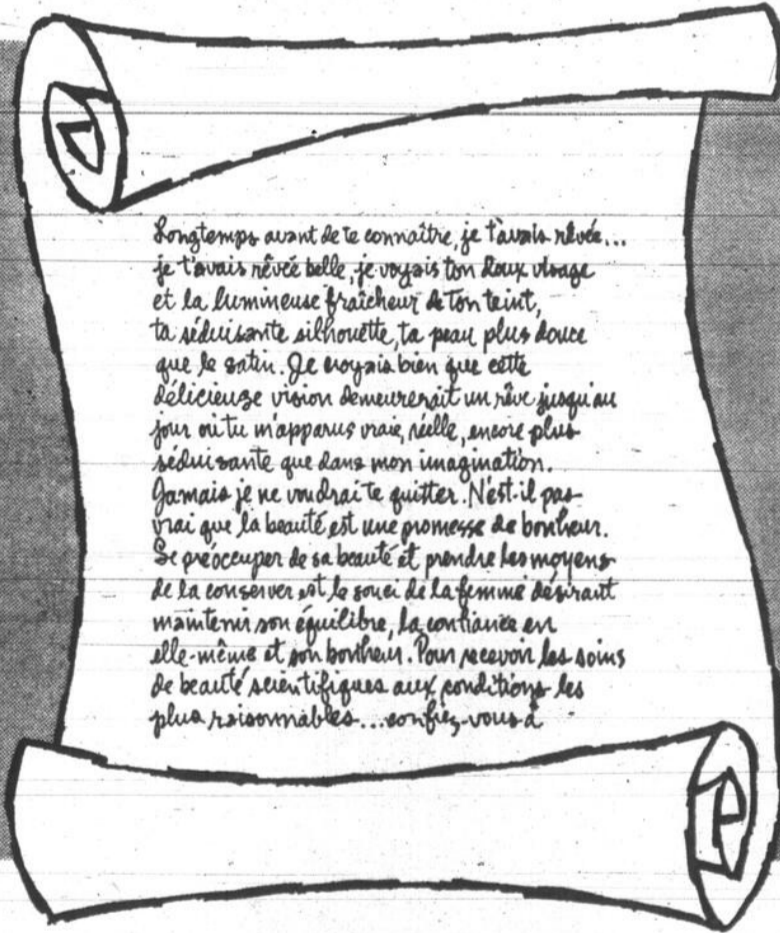 Longtemps avant de te connaître, je t'avais rêvée...
je t'avais rêvée belle, je voyais ton doux visage
et la lumineuse fraîcheur de ton teint,
ta séduisante silhouette, ta peau plus douce
que le satin. Je croyais bien que cette
délicieuse vision demeurerait un rêve jusqu'au
jour où tu m'apparus vraie, réelle, encore plus
séduisante que dans mon imagination.
Jamais je ne voudrai te quitter. N'est-il pas
vrai que la beauté est une promesse de bonheur.
Se préoccuper de sa beauté et prendre les moyens
de la conserver est le souci de la femme désirant
maintenir son équilibre, la confiance en
elle-même et son bonheur. Pour recevoir les soins
de beauté scientifiques aux conditions les
plus raisonnables...confiez-vous à